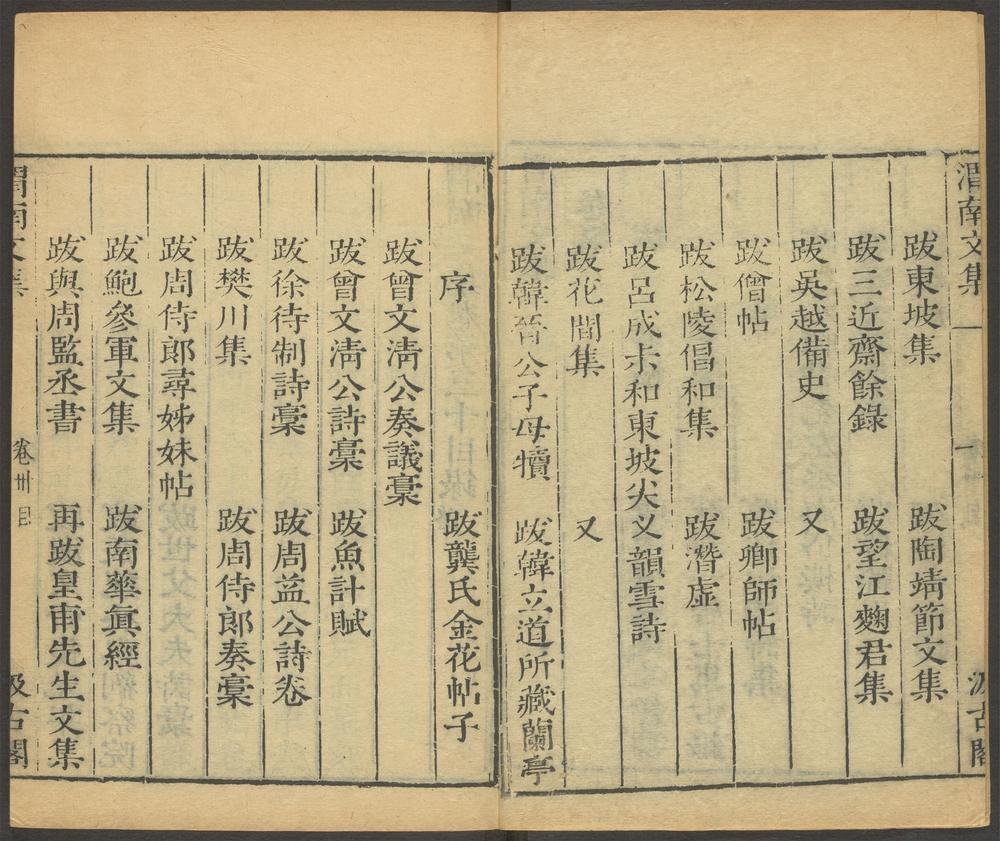 渭南文集
汲古閣
跋東坡集 跋陶靖節文集
跋三近齋餘錄 跋望江麴君集
跋吳越備史 又
跋僧帖 跋卿師帖
跋松陵倡和集 跋潛虛
跋呂成未和東坡尖叉韻雪詩
跋花間集 又
跋韓晉公子母犢 跋韓立道所藏蘭亭
序 跋龔氏金花帖子
跋曾文清公奏議稾
跋曾文清公詩稾 跋魚計賦
跋徐待制詩稾 跋周益公詩卷
跋樊川集 跋周侍郎奏稾
跋周侍郎尋姊妹帖
跋鮑參軍文集 跋南華眞經
跋與周監丞書 再跋皇甫先生文集
渭南文集 卷卅 目 汲古閣